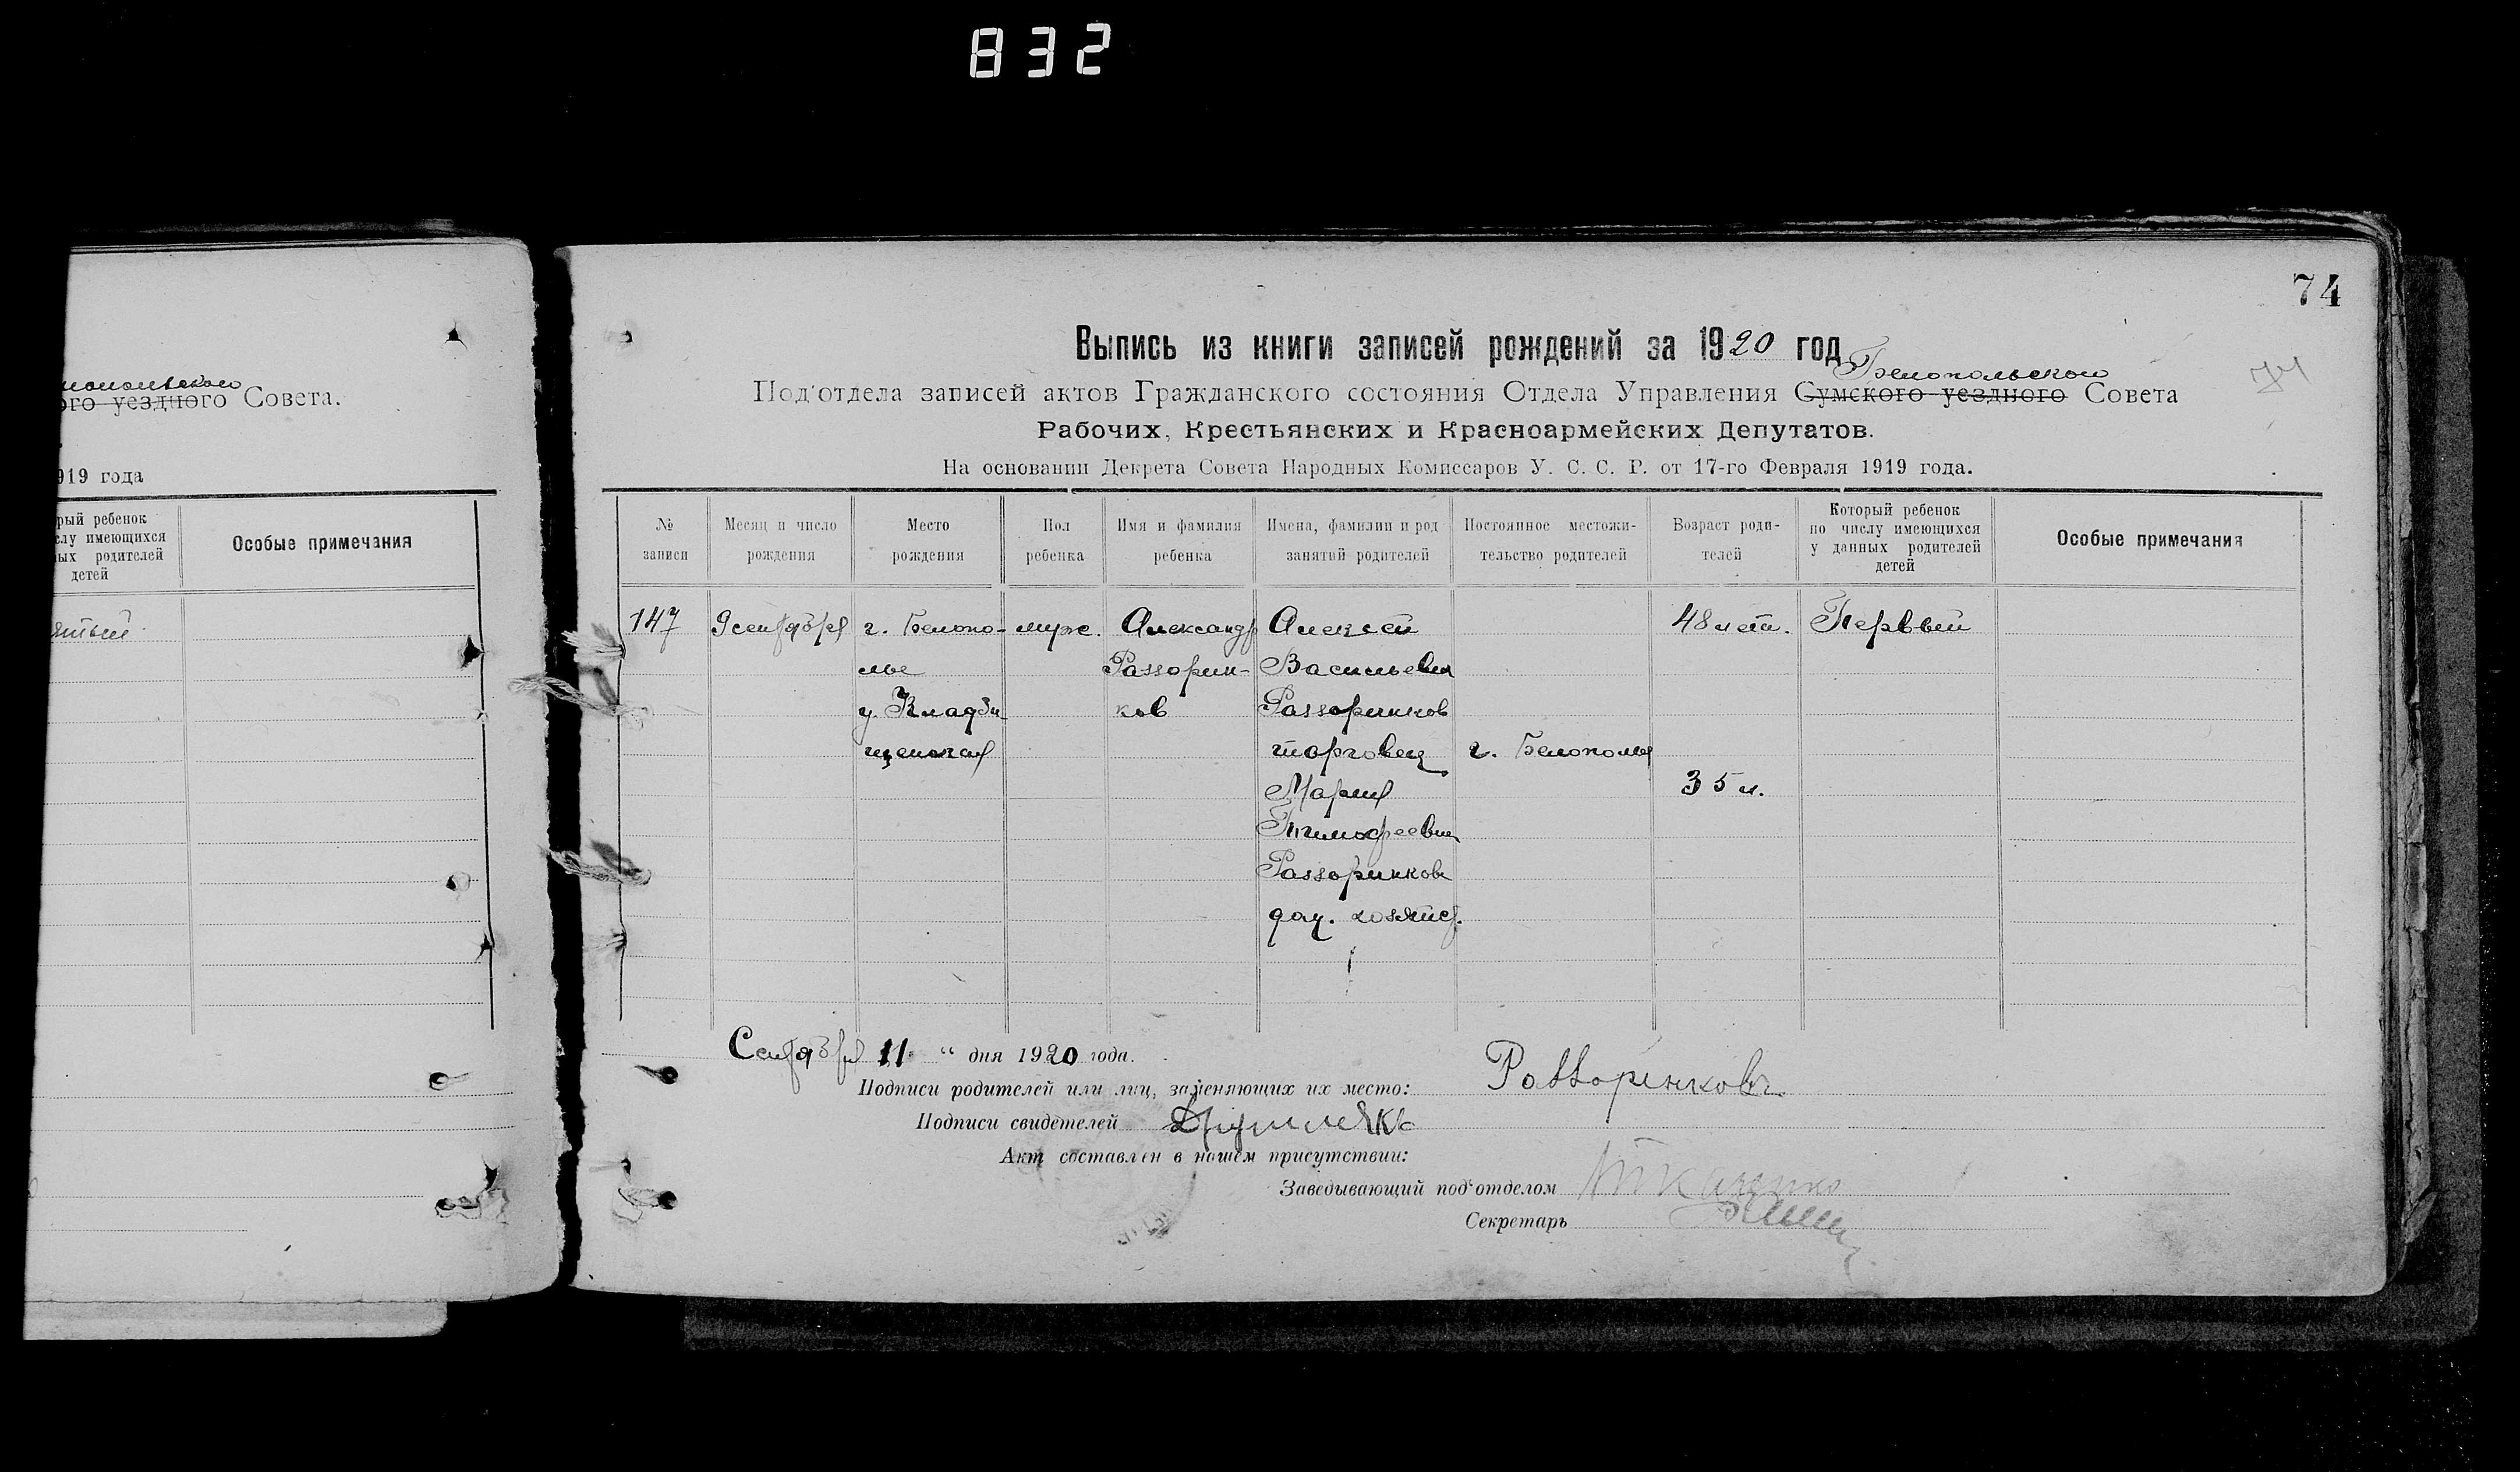 832
74
Выпись из книги записей рождений за 1920 год
Белопольского
74
Под'отдела записей актов Гражданского состояния Отдела Управления Сумского уездного Совета
Рабочих, Крестьянских и Красноармейских Депутатов.
На основании Декрета Совета Народных Комиссаров У. С. С. Р. от 17-го Февраля 1919 года.
ого уездного Совета.
919 года
рый ребенок
слу имеющихся
ых родителей
детей
Особые примечания
№ записи
Месяц и число рождения
Место рождения
Пол ребенка
Имя и фамилия ребенка
Имена, фамилии и род занятий родителей
Постоянное местожи-тельство родителей
Возраст роди-телей
Который ребенок по числу имеющихся у данных родителей детей
Особые примечания
147 9 сентября г. Белопо- муж. Александр Алексей 48 лет. Первый
лье Раззорин- Васильевич
у. Кладби ков Раззоринков
щенская торговец г. Белополья
Мария 35 л.
Тимофеевна
Раззоринкова
дом. хозяйст.
Сентября 11 “ дня 1920 года.
Подписи родителей или лиц, заменяющих их место: Раззоренковъ
Подписи свидетелей
Акт составлен в нашем присутствии:
Заведывающий под'отделом Ткаченко
Секретарь